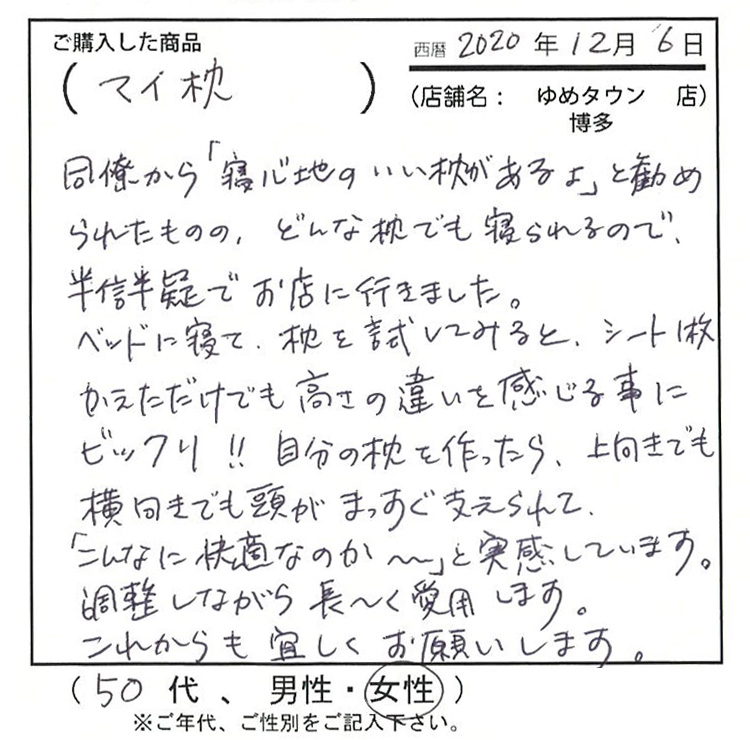 ご購入した商品
西暦 2020 年 12 月 6 日
(マイ枕)
(店舗名： ゆめタウン 店)
博多
同僚から「寝心地のいい枕があるよ」と勧め
られたものの、どんな枕でも寝られるので、
半信半疑でお店に行きました。
ベッドに寝て、枕を試してみると、シート1枚
かえただけでも高さの違いを感じる事に
ビックリ!! 自分の枕を作ったら、上向きでも
横向きでも頭がまっすぐ支えられて、
「こんなに快適なのか〜〜」と実感しています。
調整しながら長〜く愛用します。
これからも宜しくお願いします。
(50 代、男性・女性)
※ご年代、ご性別をご記入下さい。